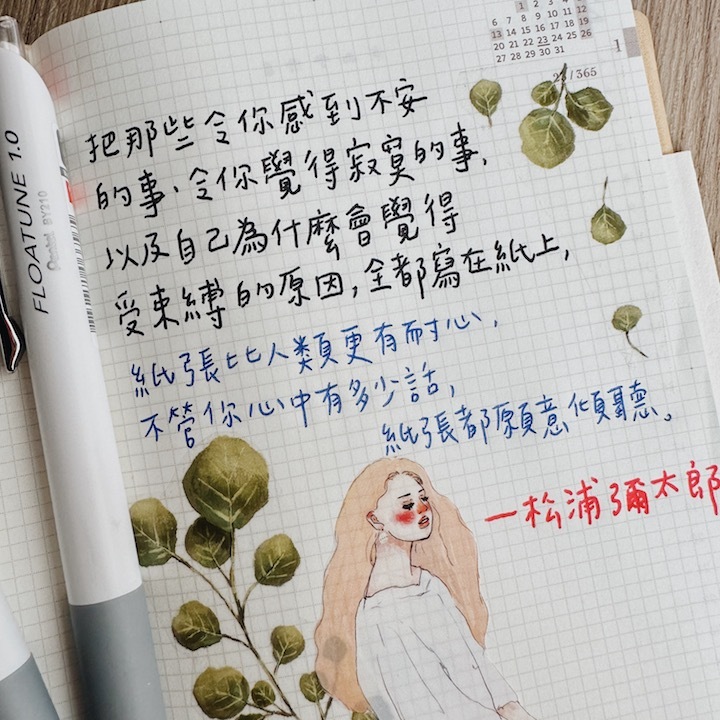 1 2 3 4 5
6 7 8 9 10 11 12
13 14 15 16 17 18 19
20 21 22 23 24 25 26
27 28 29 30 31
1
23/365
把那些令你感到不安
的事、令你覺得寂寞的事，
以及自己為什麼會覺得
受束縛的原因，全都寫在紙上，
紙張比人類更有耐心，
不管你心中有多少話，
紙張都願意傾聽。
—松浦彌太郎
FLOATUNE 1.0
Pentel BY210